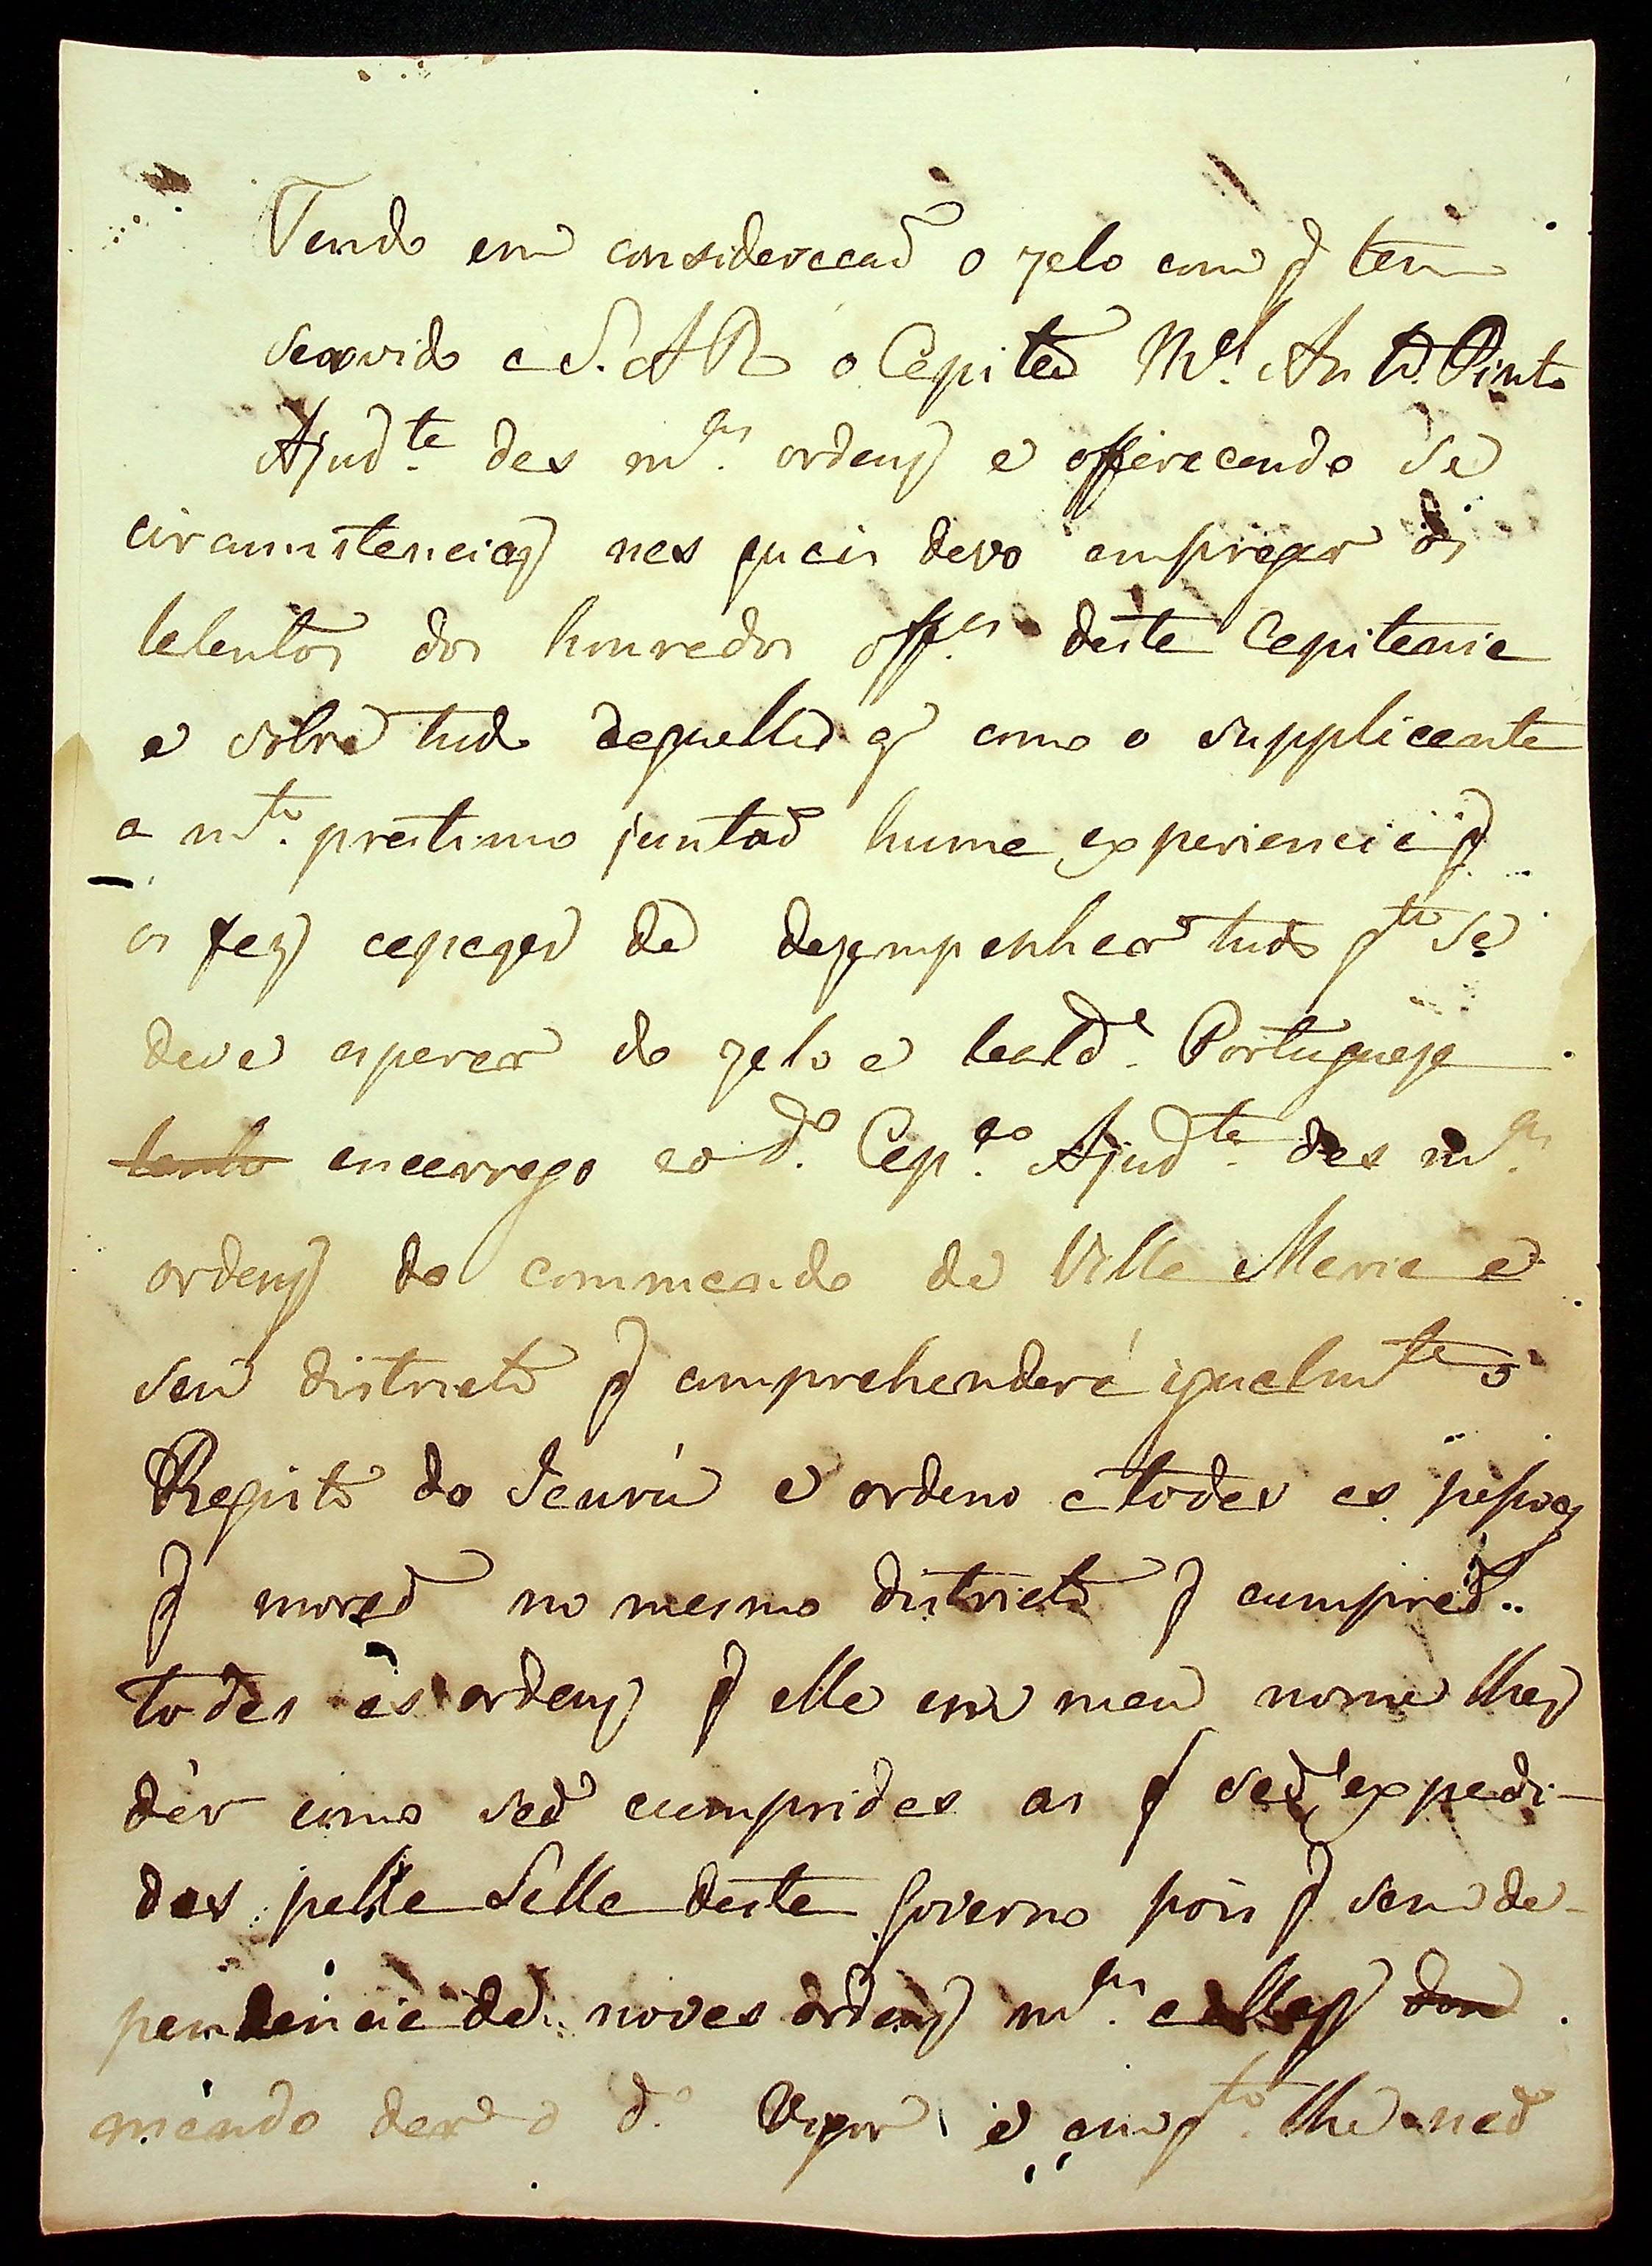 Tendo em consideraçaõ o zelo com q̃ tem
servido a S. A R o Capitaõ M.el An t.o Pinto
Ajud.te das m.as ordens e offerecendo se
circunstencias nas quais devo empregar os
talentos dos honrados off.es desta Capitania
e sobre tudo daquelles q̃ como o supplicante
a m.to prestimo juntaõ huma experiencia q̃
os fez capazes de dezempenhar tudo q.to se
deve esperar do zelo e leald.e Portugueza
encarrego ao d.o Cap.ao Ajud.te das m.as
ordens do commando de Villa Maria e
seu districto q̃ comprehenderá igualm.te o
Registo do Jaurú e ordeno a todas as pessoas
q̃ moraõ no mesmo districto q̃ cumpraõ
todas as ordens q̃ elle em meu nome lhes
dér como saõ cumpridas as q̃ saõ expedi-
das pella Salla deste Governo pois q̃ sem de-
pendencia de novas ordens m.as a ellas
mando dar o d.o vigor e em q.to lhe naõ